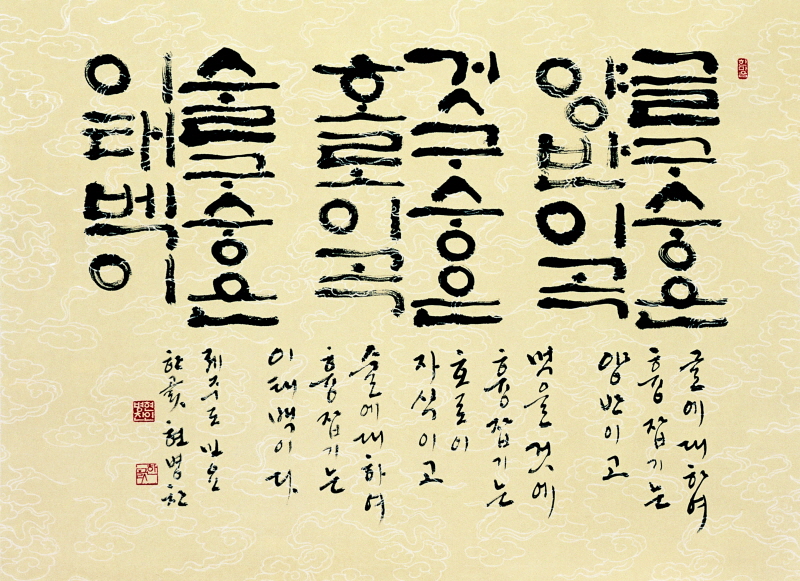 글구숭은
양반이곡
것구숭은
호로이곡
술구숭은
이태벡이
글에 대하여
흉 잡기는
양반이고
먹을 것에
흉 잡기는
호로이
자식이고
술에 대하여
흉 잡기는
이태백이다
제주도 민요
한곬 현병찬